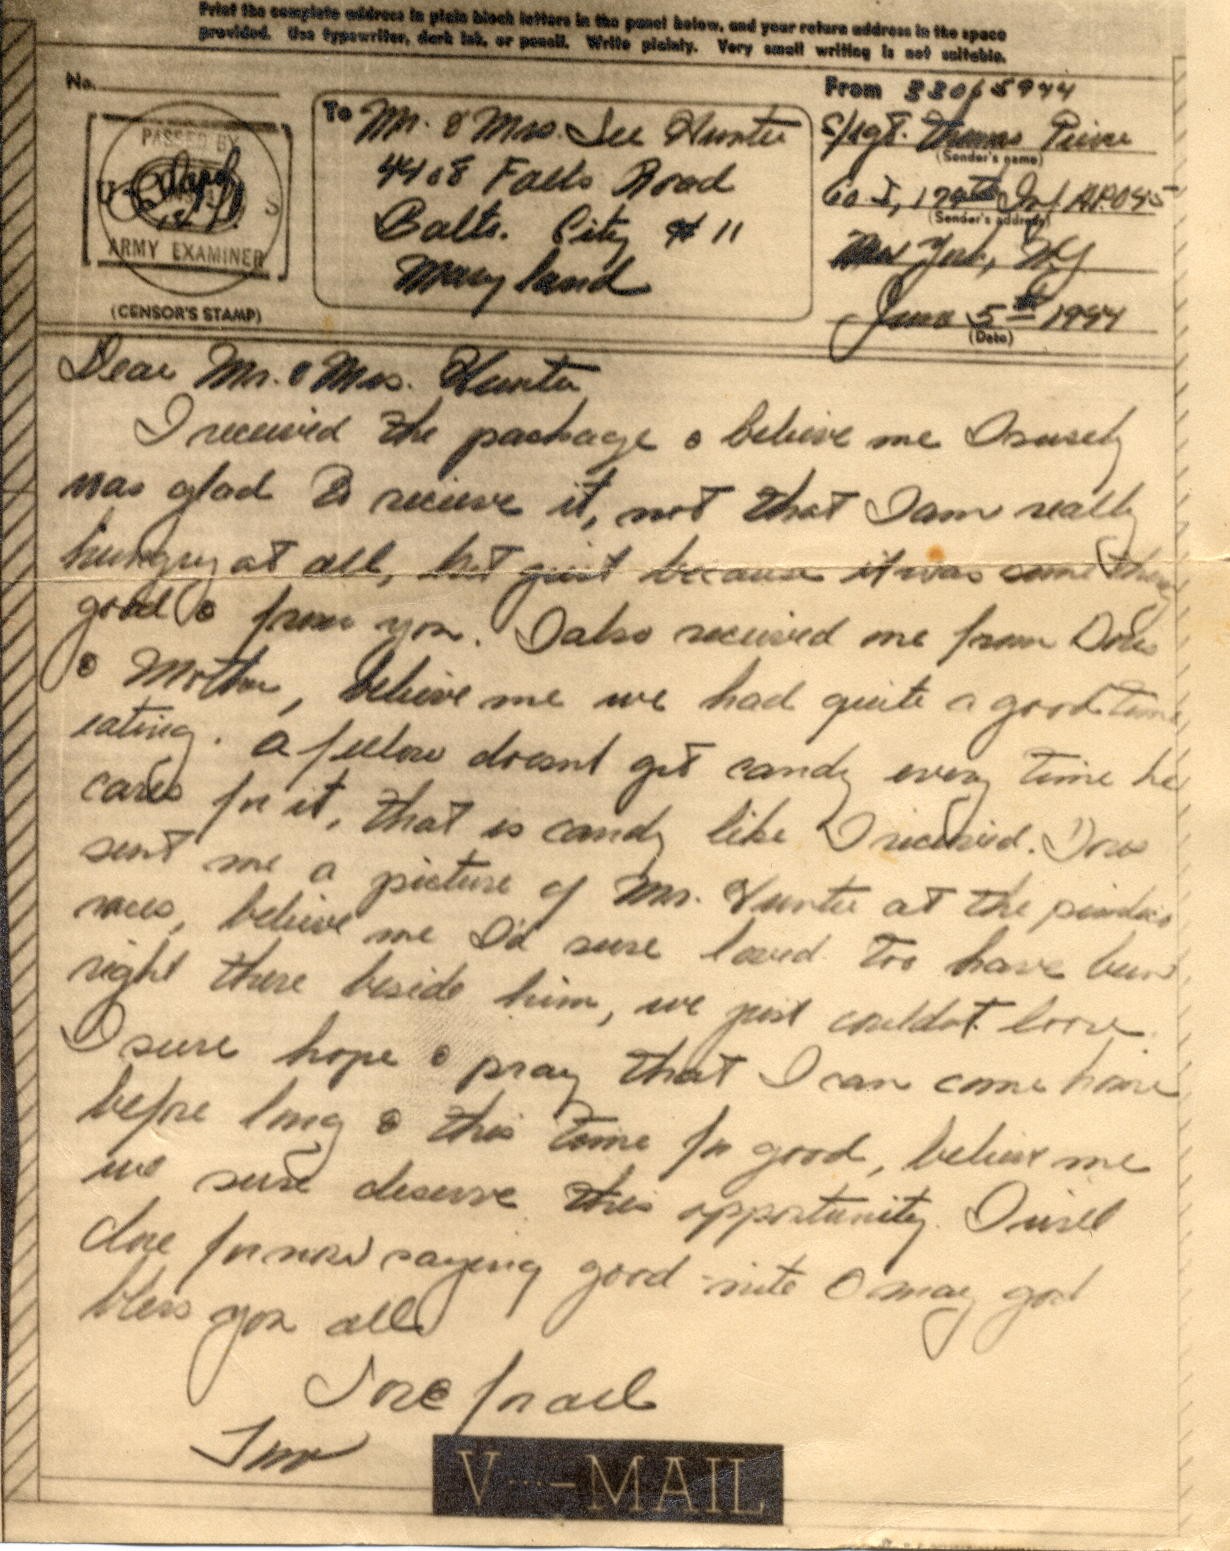 Print the complete address in plain block letters in the panel below, and your return address in the space
provided. Use typewriter, dark ink, or pencil. Write plainly. Very small writing is not suitable.
No.
PASSED BY
U S
ARMY EXAMINER
(CENSOR'S STAMP)
To Mr. & Mrs. Lee Hunter
4408 Falls Road
Balto. City # 11
Maryland
From 33065944
S/Sgt. Thomas Peirce
(Sender's name)
Co I, 179th Inf APO 45
(Sender's address)
New York, NY
June 5th 1944
(Date)
Dear Mr. & Mrs. Hunter
I received the package & believe me I surely
was glad to recieve it, not that I am really
hungry at all, but just because it was some thing
good & from you. I also received one from Doris
& Mother, believe me we had quite a good time
eating. A fellow doesnt get candy every time he
cares for it, that is candy like I received. Doris
sent me a picture of Mr. Hunter at the pimlico
races, believe me I'd sure loved too have been
right there beside him, we just couldnt loose
I sure hope & pray that I can come home
before long & this time for good, believe me
we sure deserve this opportunity. I will
close for now saying good-nite & may god
bless you all
Love for all
Tom
V···-MAIL